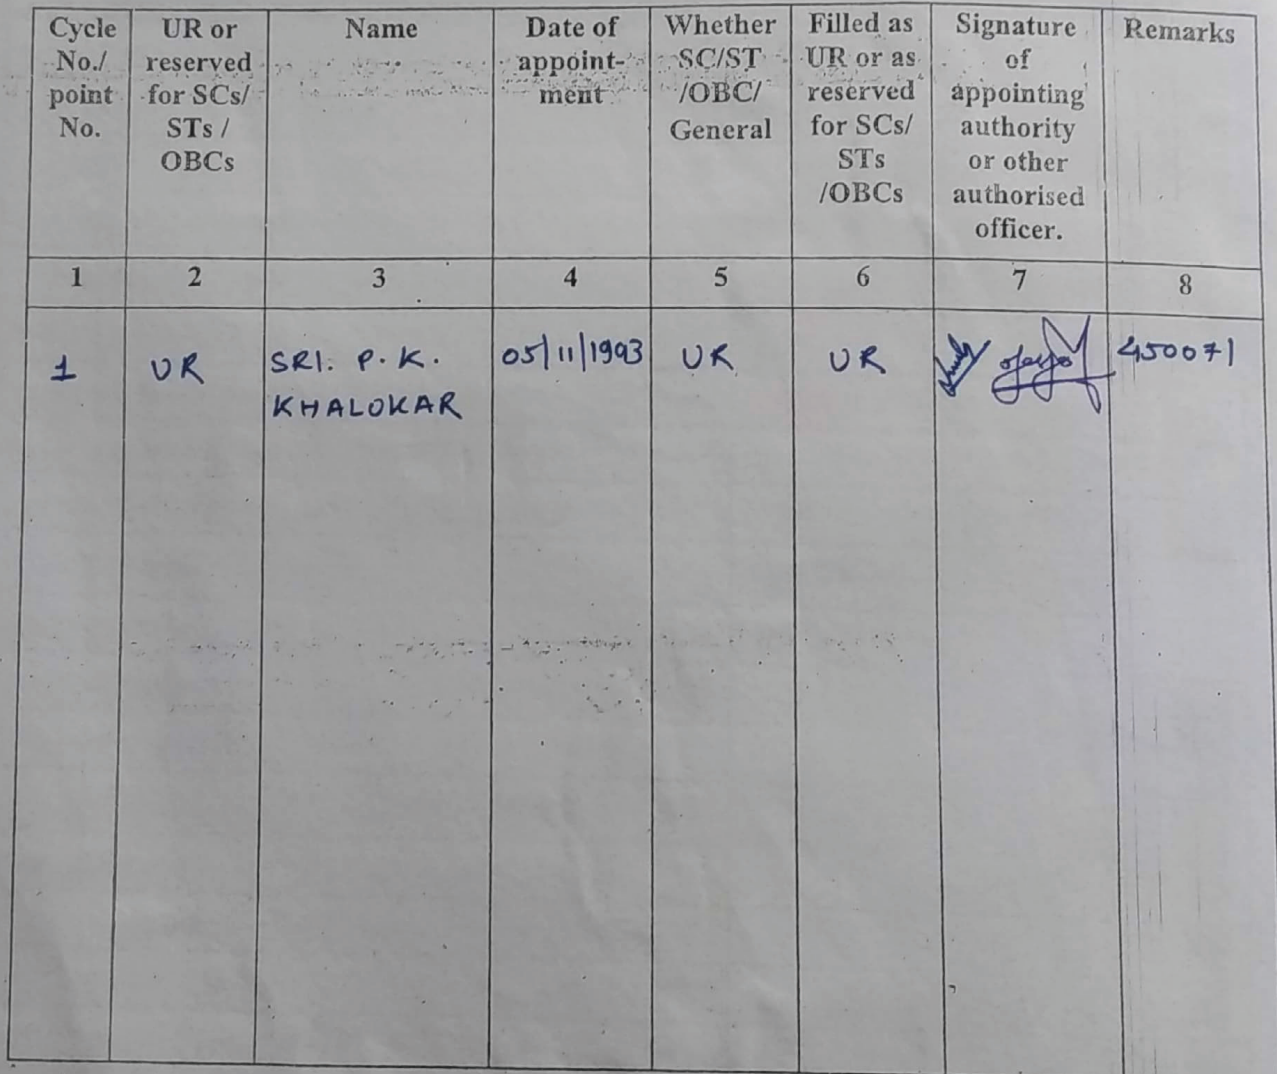 Cycle No./ point No.
UR or reserved for SCs/ STs / OBCs
Name
Date of appoint- ment
Whether SC/ST /OBC/ General
Filled as UR or as reserved for SCs/ STs /OBCs
Signature of appointing authority or other authorised officer.
Remarks
1 2 3 4 5 6 7 8
1 UR SRI. P. K. 05/11/1993 UR UR 450071
KHALOKAR